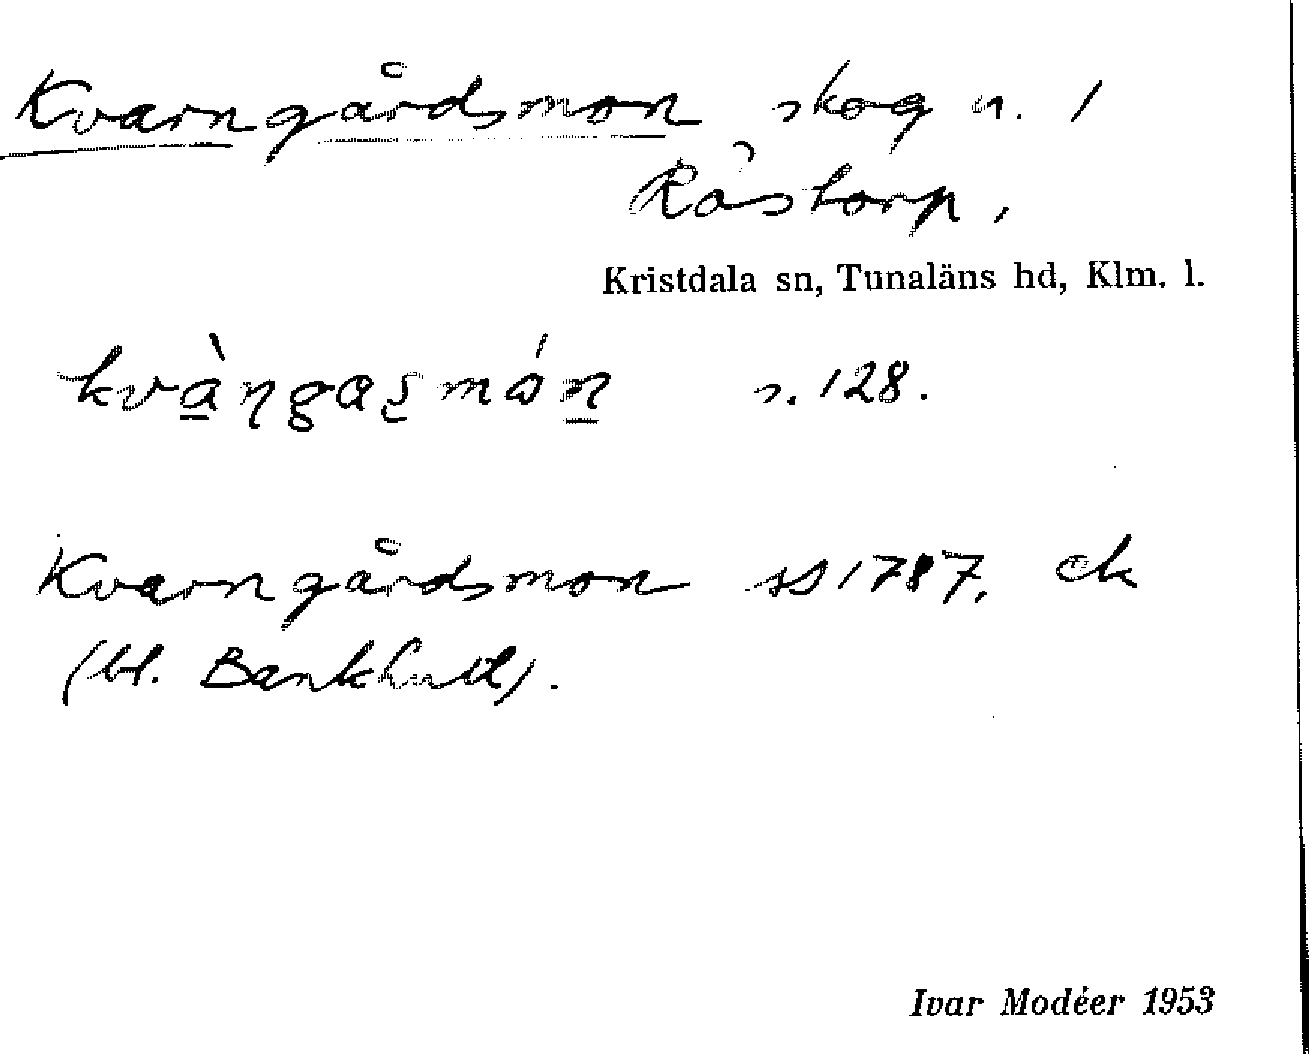 Kvarngårdsmon skog n. 1
Råstorp.
Kristdala sn, Tunaläns hd, Klm. l.
kvà̱ngaʂmóṉ s. 128.
Kvarngårdsmon SS 1787, ek
(bl. Bankhult).
Ivar Modéer 1953